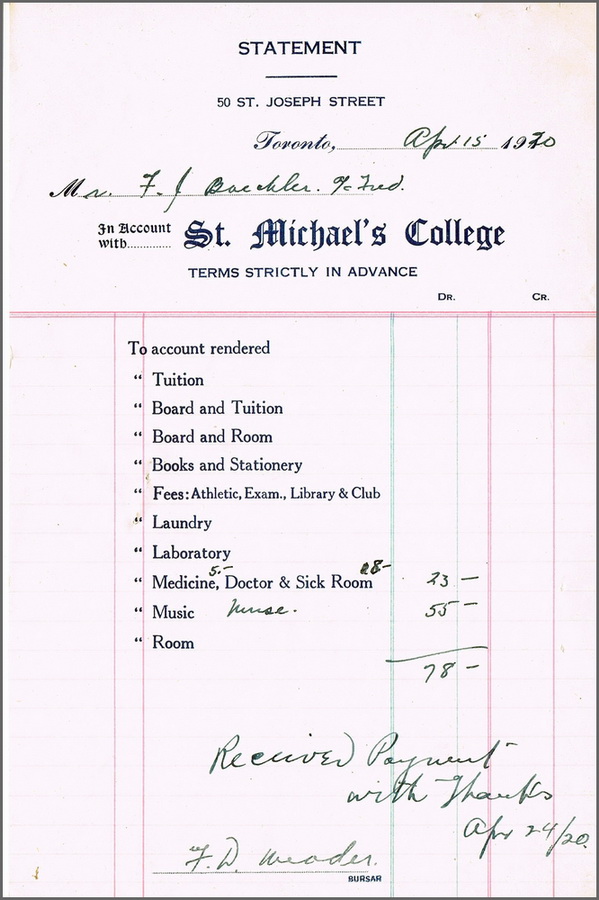 STATEMENT
50 ST. JOSEPH STREET
Toronto, Apr 15 1920
Mr. F. J Boeckler. a/c Fred.
In Account
with............ St. Michael's College
TERMS STRICTLY IN ADVANCE
DR. CR.
To account rendered
“ Tuition
“ Board and Tuition
“ Board and Room
“ Books and Stationery
“ Fees: Athletic, Exam., Library & Club
“ Laundry
“ Laboratory
5.- 18-
“ Medicine, Doctor & Sick Room 23 —
“ Music Nurse. 55 —
“ Room
78 —
Received Payment
with Thanks
Apr 24/20.
F. D. Meader.
BURSAR